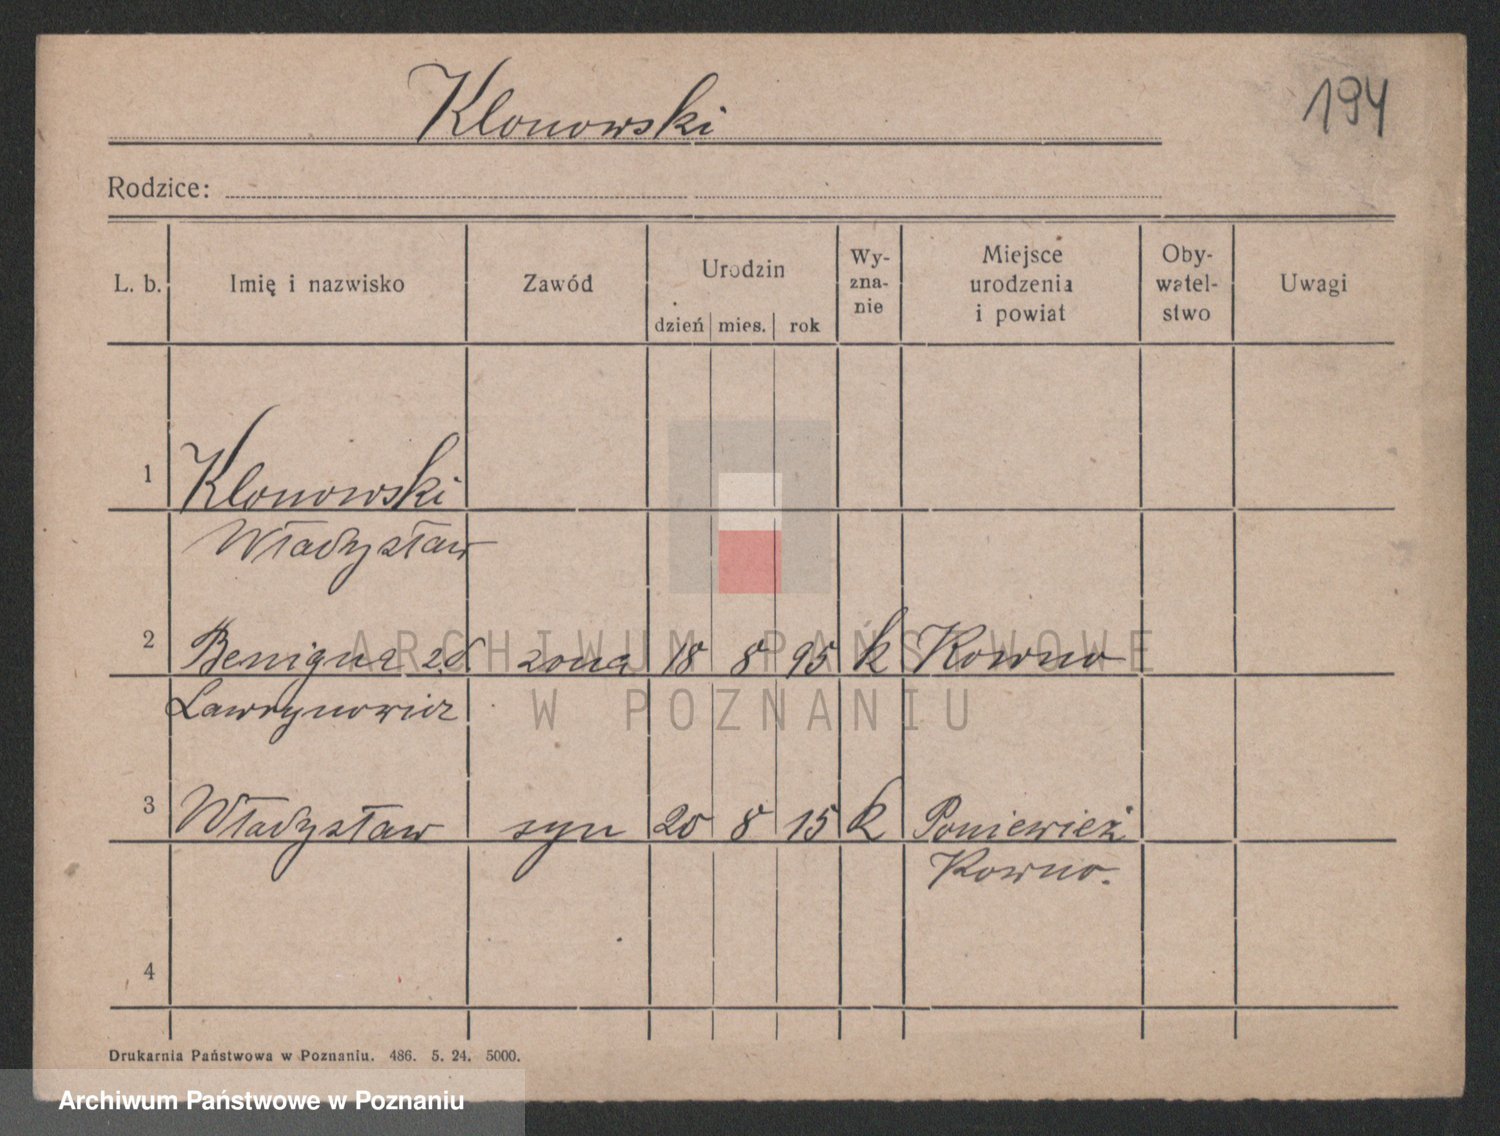 Klonowski
194
Rodzice:
L. b. Imię i nazwisko Zawód Urodzin dzień mies. rok Wy-zna-nie Miejsce urodzenia i powiat Oby-watel-stwo Uwagi
1 Klonowski
Władysław
2 Benigna zd. zona 18 8 95 k Kowno
Ławrynowicz
3 Władysław syn 20 8 15 k Poniewież
Kowno.
4
Drukarnia Państwowa w Poznaniu. 486. 5. 24. 5000.
ARCHIWUM PAŃSTWOWE
W POZNANIU
Archiwum Państwowe w Poznaniu